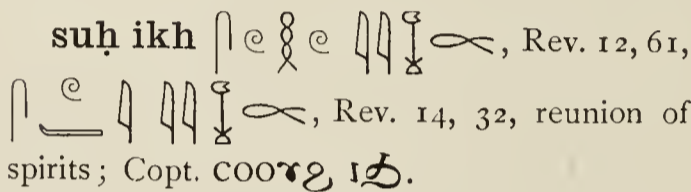 suḥ ikh 𓋴𓏲𓎛𓏲𓇋𓇋𓆼, Rev. 12, 61,
𓋴𓏲𓇋𓇋𓇋𓆼, Rev. 14, 32, reunion of
spirits; Copt. ⲥⲟⲟⲩϩ ⲓϧ.